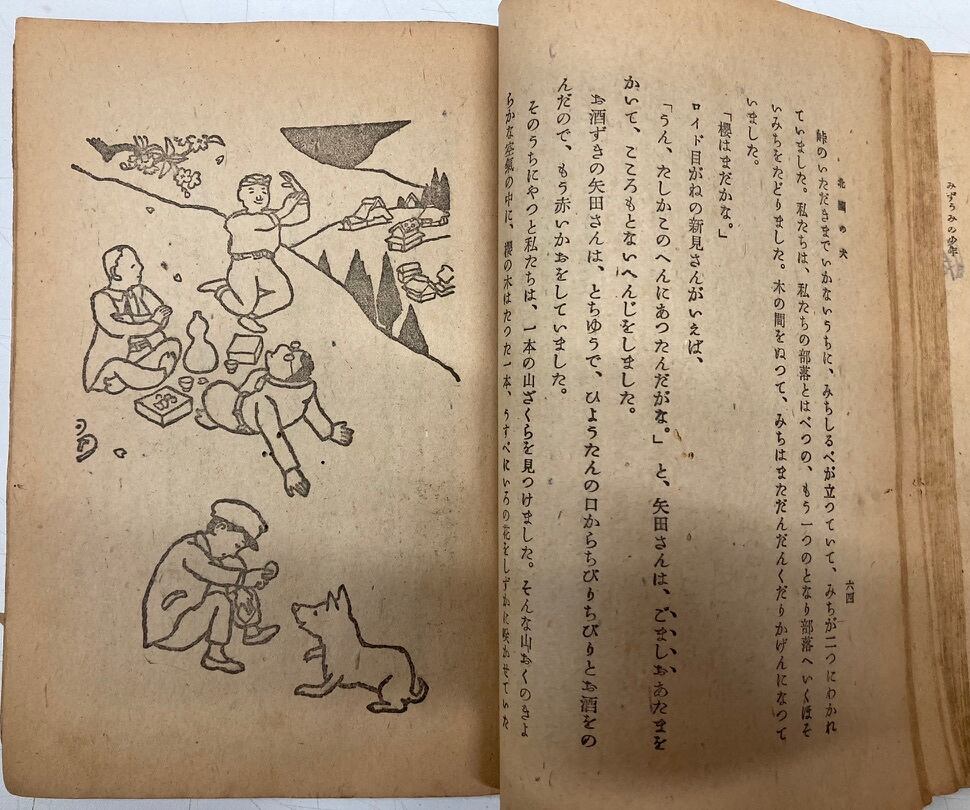 みずうみの少年
北國の犬
六四
峠のいただきまでいかないうちに、みちしるべが立つていて、みちが二つにわかれ
ていました。私たちは、私たちの部落とはべつの、もう一つのとなり部落へいくほそ
いみちをたどりました。木の間をぬつて、みちはまただんだんくだりかげんになつて
いました。
「櫻はまだかな。」
ロイド目がねの新見さんがいえば、
「うん、たしかこのへんにあつたんだがな。」と、矢田さんは、ごましおあたまを
かいて、こころもとないへんじをしました。
お酒ずきの矢田さんは、とちゆうで、ひようたんの口からちびりちびりとお酒をの
んだので、もう赤いかおをしていました。
そのうちにやつと私たちは、一本の山ざくらを見つけました。そんな山おくのきよ
らかな空氣の中に、櫻の木はたつた一本、うすべにいろの花をしずかに咲かせていた